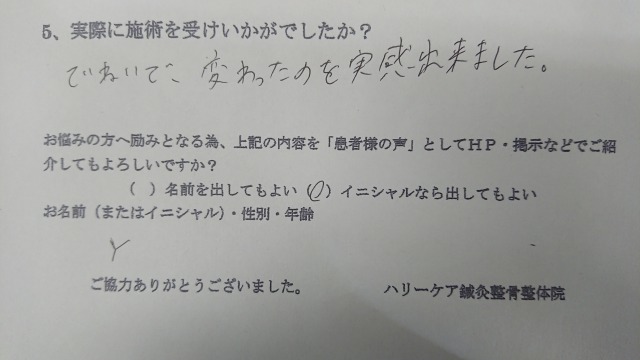 5、実際に施術を受けいかがでしたか？
ていねいで、変わったのを実感出来ました。
お悩みの方へ励みとなる為、上記の内容を「患者様の声」としてＨＰ・掲示などでご紹
介してもよろしいですか？
（　）名前を出してもよい（○）イニシャルなら出してもよい
お名前（またはイニシャル）・性別・年齢
Y
ご協力ありがとうございました。　ハリーケア鍼灸整骨整体院